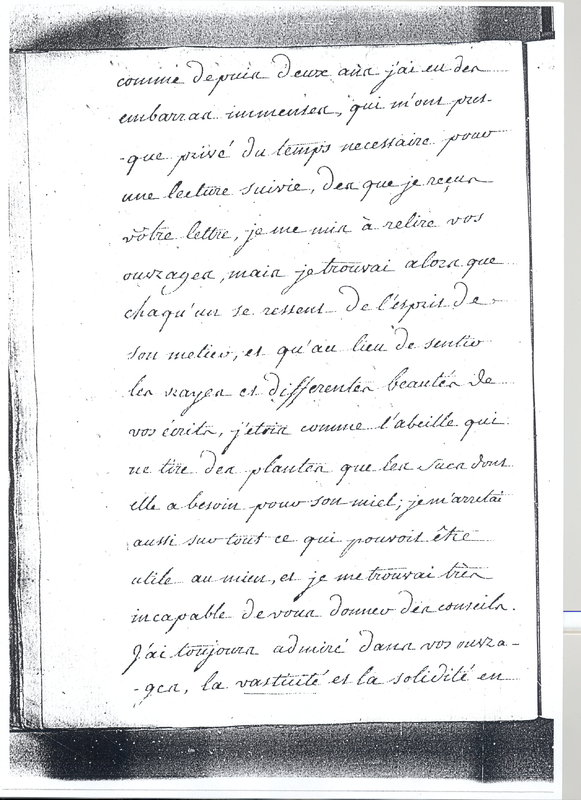 comme depuis deux ans j'ai eu des
embarras immenses, qui m'ont pres-
-que privé du temps necessaire pour
une lecture suivie, des que je reçus
vôtre lettre, je me mis à relire vos
ouvrages, mais je trouvai alors que
chaqu'un se ressent de l'esprit de
son metier, et qu'au lieu de sentir
les rayes et differentes beautés de
vos écrits, j'etois comme l'abeille qui
ne tire des plantes que les sucs dont
elle a besoin pour son miel; je m'arretai
aussi sur tout ce qui pouvoit être
utile au mien, et je me trouvai très
incapable de vous donner des conseils.
J'ai toujours admiré dans vos ouvra-
-ges, la vastitité et la solidité en